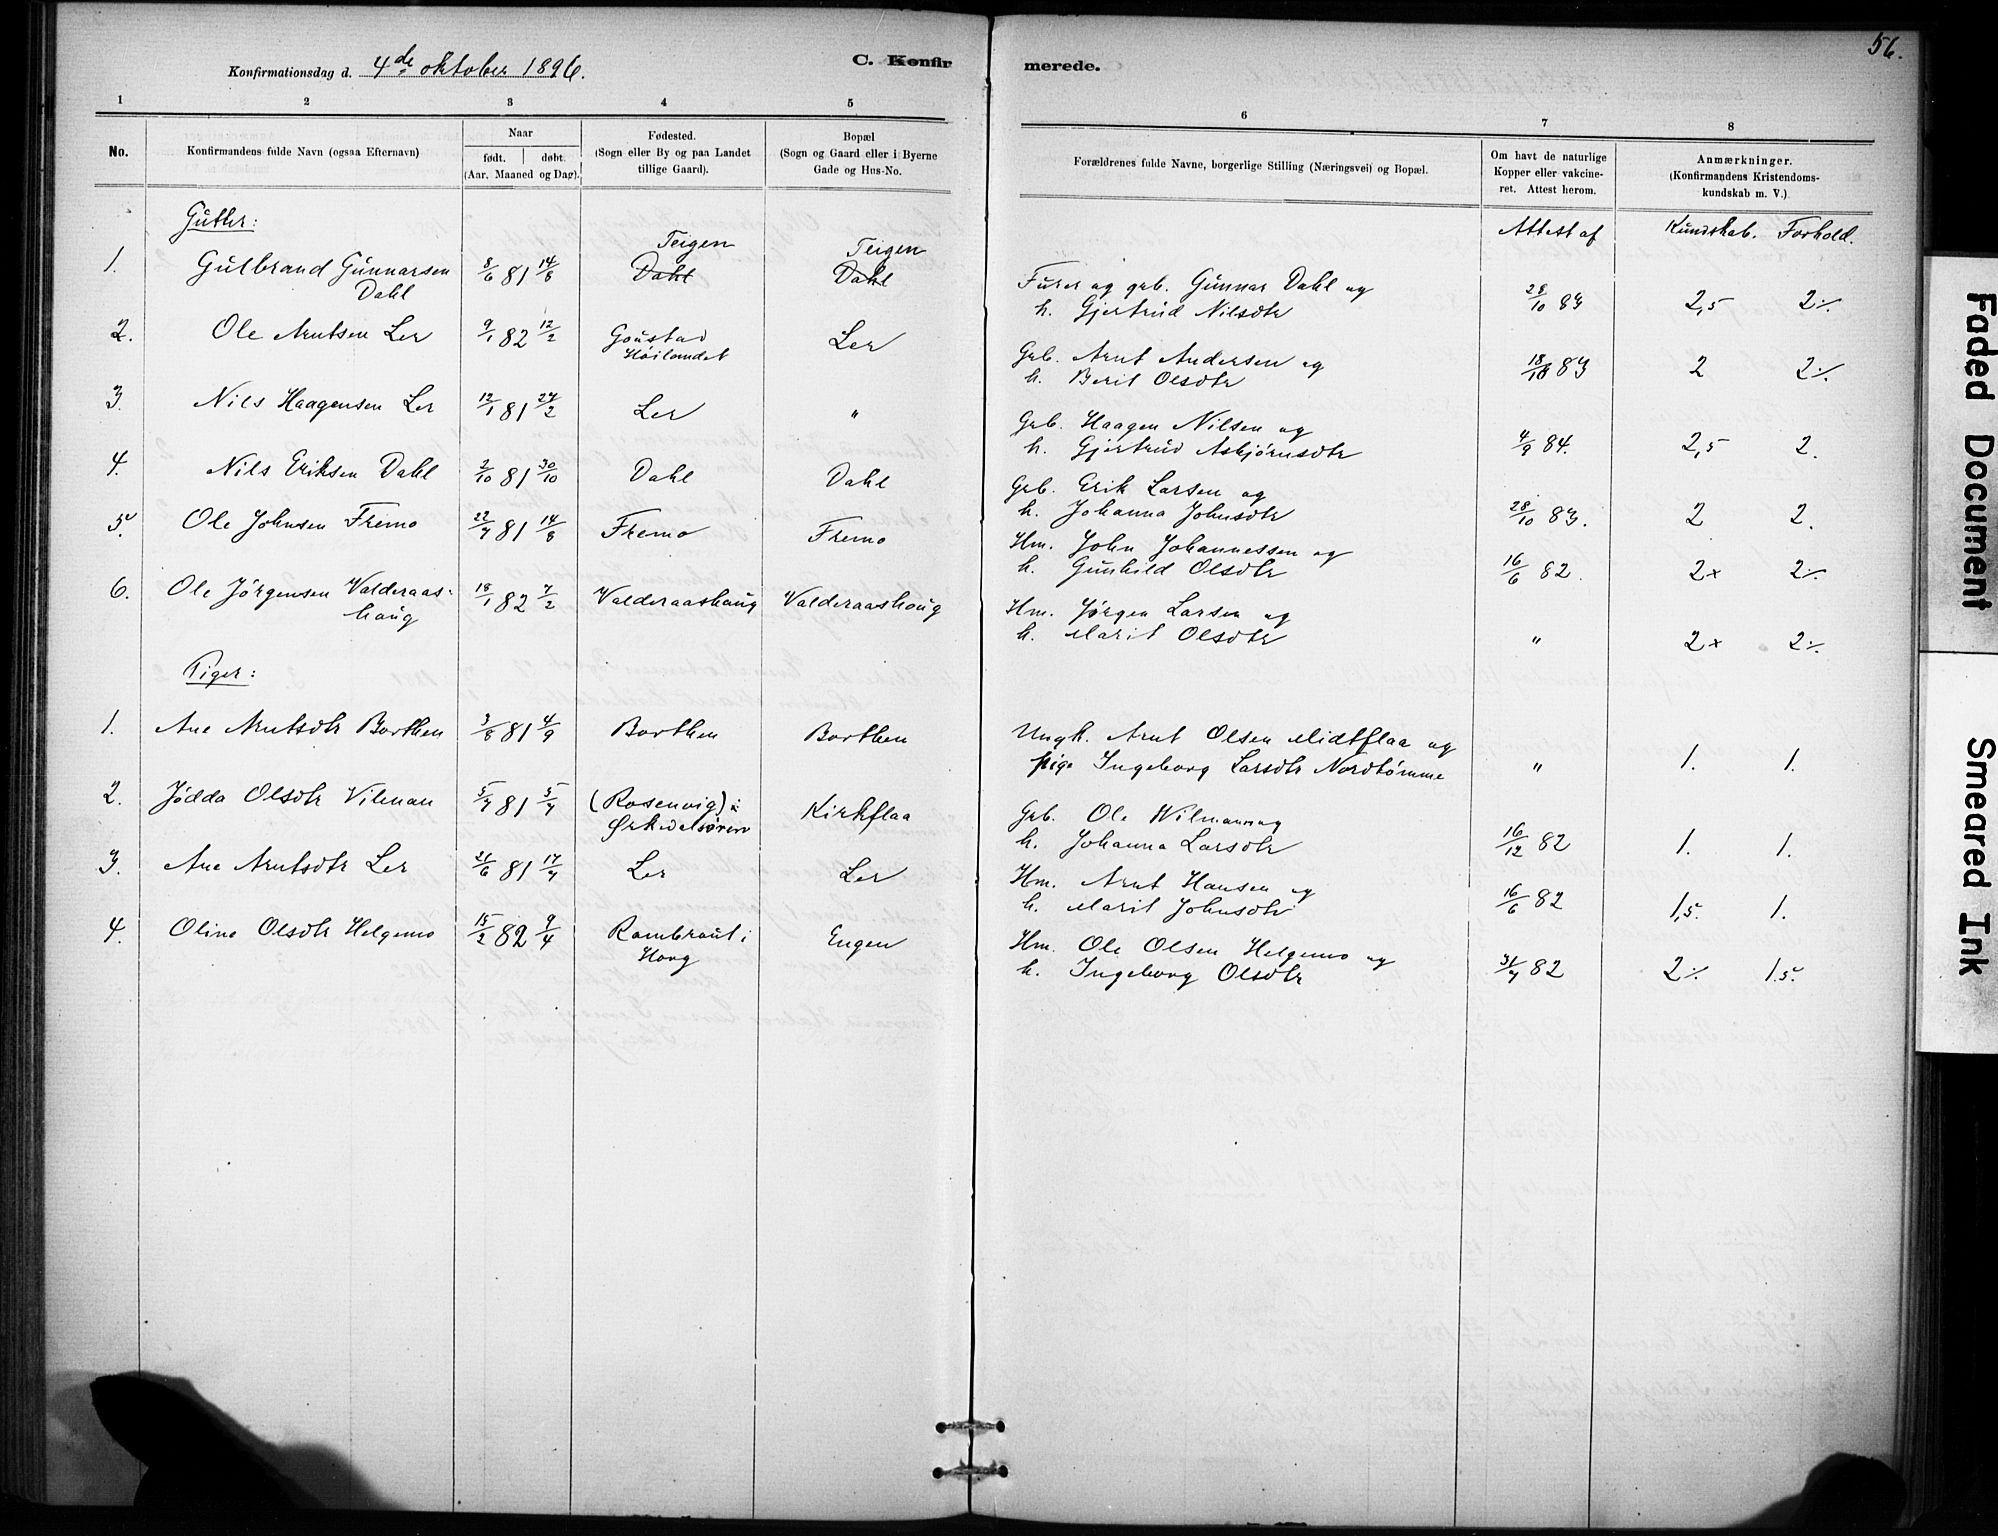 56.
Konfirmationsdag d. 4de oktober 1896.
C. Konfirmerede.
1 2 3 4 5 6 7 8
No.
Konfirmandens fulde Navn (ogsaa Efternavn)
Naar
født. | døbt.
(Aar, Maaned og Dag).
Fødested.
(Sogn eller By og paa Landet
tillige Gaard).
Bopæl
(Sogn og Gaard eller i Byerne
Gade og Hus-No.
Forældrenes fulde Navne, borgerlige Stilling (Næringsvei) og Bopæl.
Om havt de naturlige
Kopper eller vakcine-
ret. Attest herom.
Anmærkninger.
(Konfirmandens Kristendoms-
kundskab m. V.)
Gutter:
Attest af Kundskab. Forhold.
Teigen Teigen
1. Gulbrand Gunnarsen 8/6 81 14/8 Dahl Dahl
Dahl
Furer og grb. Gunnar Dahl og
h. Gjertrud Nilsdtr 28/10 83 2,5 2÷
2. Ole Arntsen Ler 9/1 82 12/2 Goustad Ler
Höilandet
Grb. Arnt Andersen og
h. Berit Olsdtr 18/10 83 2 2÷
3. Nils Haagensen Ler 12/1 81 27/2 Ler "
Grb. Haagen Nilsen og
h. Gjertrud Asbjørnsdtr 4/9 84. 2,5 2.
4. Nils Eriksen Dahl 2/10 81 30/10 Dahl Dahl
Grb. Erik Larsen og
h. Johanna Johnsdtr 28/10 83. 2 2.
5. Ole Johnsen Fremo 22/7 81 14/8 Fremo Fremo
Hm. John Johannessen og
h. Gunhild Olsdtr 16/6 82. 2× 2÷
6. Ole Jörgensen Valderaas- 18/1 82 7/2 Valderaashaug Valderaashaug
haug
Hm. Jørgen Larsen og
h. Marit Olsdtr " 2× 2÷
Piger:
1. Ane Arntsdtr Borthen 3/8 81 4/9 Borthen Borthen
Ungk. Arnt Olsen Midtflaa og
pige Ingeborg Larsdtr Nordtömme " 1. 1.
2. Jödda Olsdtr Vilman 5/7 81 5/7 (Rosenvig) i Kirkflaa
Ørkedalsøren
Grb. Ole Wilmann og
h. Johanna Larsdtr 16/12 82 1. 1.
3. Ane Arntsdtr Ler 21/6 81 17/7 Ler Ler
Hm. Arnt Hansen og
h. Marit Johnsdtr 16/6 82 1,5. 1.
4. Oline Olsdtr Helgemo 15/2 82 9/4 Rambraut i Engen
Horg
Hm. Ole Olsen Helgemo og
h. Ingeborg Olsdtr 31/7 82 2÷ 1.5.
Faded Document
Smeared Ink